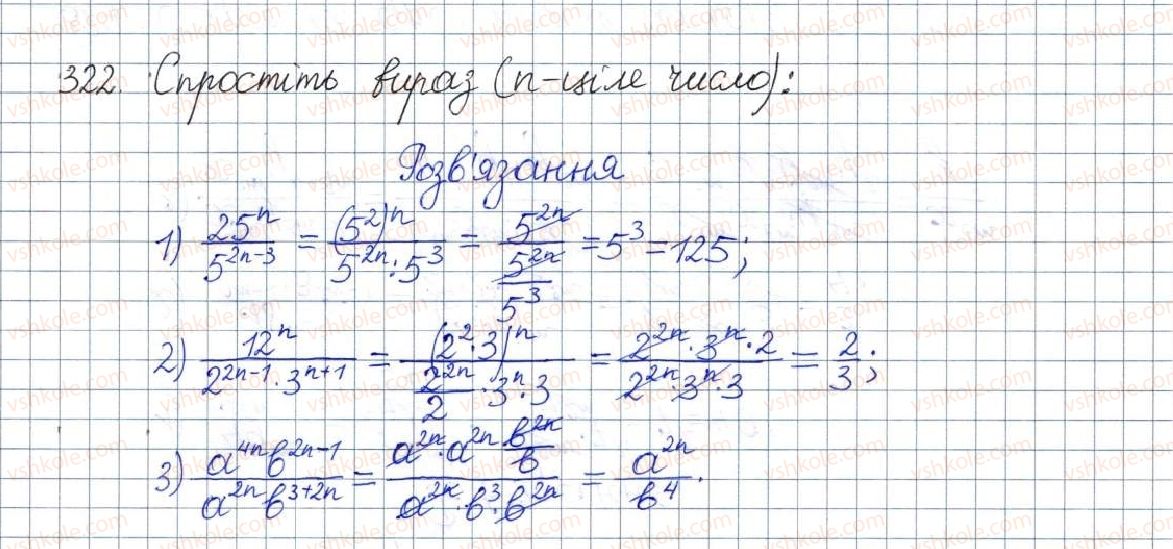 322. Спростіть вираз (n-ціле число):
Розв'язання
1) 25^n / 5^(2n-3) = (5^2)^n / (5^(2n) : 5^3) = 5^(2n) / (5^(2n) / 5^3) = 5^3 = 125;
2) 12^n / (2^(2n-1) · 3^(n+1)) = (2^2 · 3)^n / (2^(2n)/2 · 3^n · 3) = (2^(2n) · 3^n · 2) / (2^(2n) · 3^n · 3) = 2/3;
3) a^(4n) b^(2n-1) / (a^(2n) b^(3+2n)) = (a^(2n) · a^(2n) · b^(2n)/b) / (a^(2n) · b^3 · b^(2n)) = a^(2n) / b^4.
vshkole.com